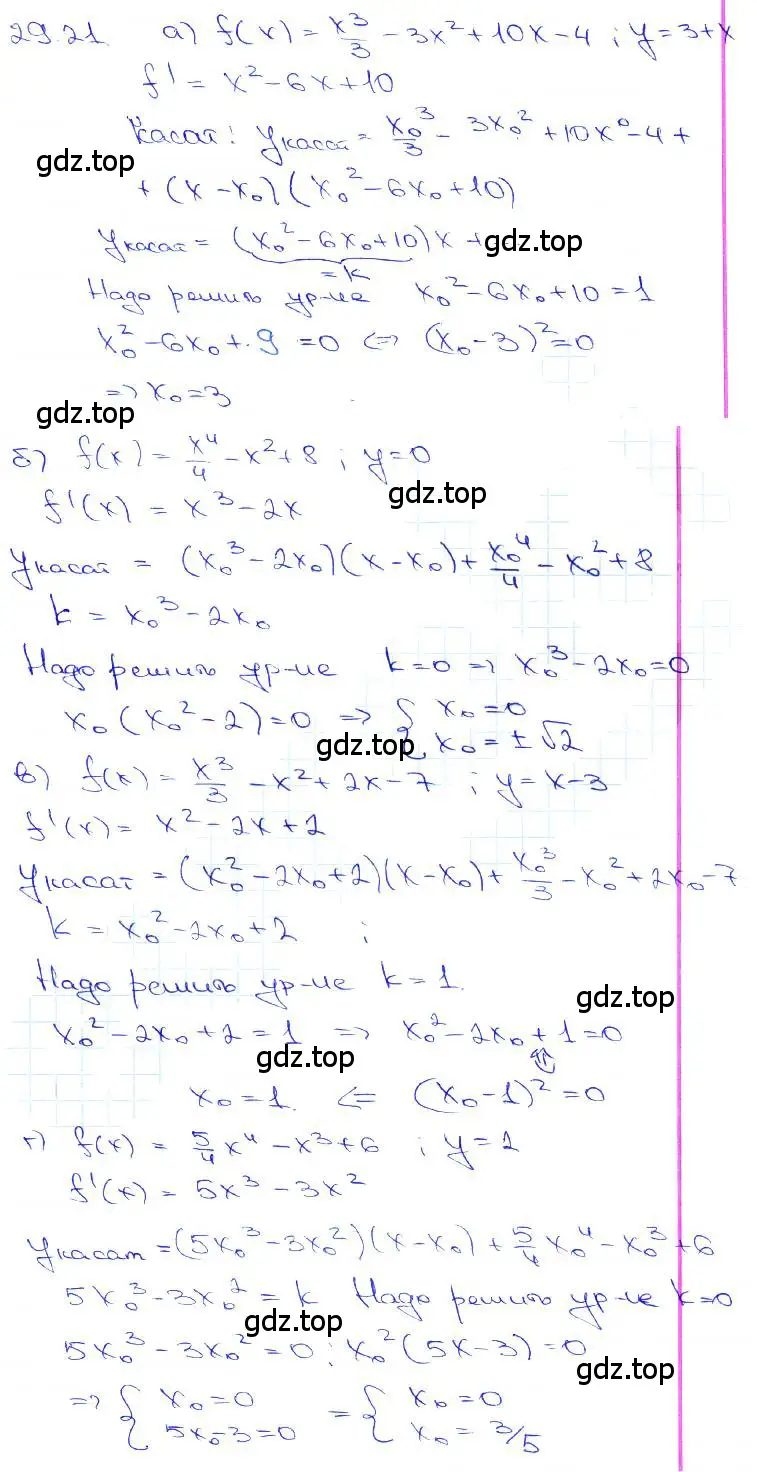 29.21. а) f(x) = x³/3 - 3x² + 10x - 4 ; y = 3 + x
f' = x² - 6x + 10
Касат: yкасат = x₀³/3 - 3x₀² + 10x⁰ - 4 +
gdz.top
+ (x - x₀)(x₀² - 6x₀ + 10)
yкасат = (x₀² - 6x₀ + 10)x + gdz.top
= k
Надо решить ур-ие x₀² - 6x₀ + 10 = 1
x₀² - 6x₀ + 9 = 0 <=> (x₀ - 3)² = 0
=> x₀ = 3
gdz.top
б) f(x) = x⁴/4 - x² + 8 ; y = 0
f'(x) = x³ - 2x gdz.top
yкасат = (x₀³ - 2x₀)(x - x₀) + x₀⁴/4 - x₀² + 8
k = x₀³ - 2x₀
Надо решить ур-ие k = 0 => x₀³ - 2x₀ = 0
x₀(x₀² - 2) = 0 => { x₀ = 0
gdz.top x₀ = ± √2
в) f(x) = x³/3 - x² + 2x - 7 ; y = x - 3
f'(x) = x² - 2x + 2
yкасат = (x₀² - 2x₀ + 2)(x - x₀) + x₀³/3 - x₀² + 2x₀ - 7
k = x₀² - 2x₀ + 2 ;
Надо решить ур-ие k = 1.
gdz.top
x₀² - 2x₀ + 2 = 1 => x₀² - 2x₀ + 1 = 0
gdz.top
x₀ = 1. <= (x₀ - 1)² = 0
г) f(x) = 5/4 x⁴ - x³ + 6 ; y = 2
f'(x) = 5x³ - 3x²
yкасат = (5x₀³ - 3x₀²)(x - x₀) + 5/4 x₀⁴ - x₀³ + 6
5x₀³ - 3x₀² = k Надо решить ур-ие k = 0
gdz.top
5x₀³ - 3x₀² = 0 ; x₀²(5x - 3) = 0
gdz.top
=> { x₀ = 0 = { x₀ = 0
5x₀ - 3 = 0 x₀ = 3/5